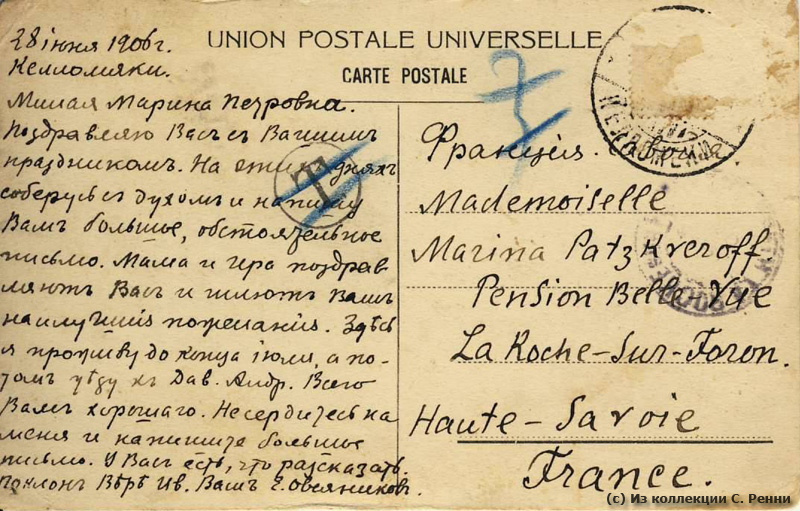 28 іюня 1906 г.
Келломяки.
UNION POSTALE UNIVERSELLE
CARTE POSTALE
Милая Марина Петровна.
Поздравляю Васъ съ Вашимъ
праздникомъ. На этихъ дняхъ
соберусь съ духомъ и напишу
Вамъ большое, обстоятельное
письмо. Мама и Ира поздрав
ляютъ Васъ и шлютъ Вамъ
наилучшія пожеланія. Здѣсь
я проживу до конца іюля, а по-
томъ уѣду къ Дав. Андр. Всего
Вамъ хорошаго. Не сердитесь на
меня и напишите большое
письмо. У Васъ есть, что разсказать.
Поклонъ Вѣрѣ Ив. Вашъ Е. Овсянниковъ.
T
Франція.
Mademoiselle
Marina Patzkreroff.
Pension Belle-Vue
La Roche-Sur-Foron.
Haute-Savoie
France.
(c) Из коллекции С. Ренни